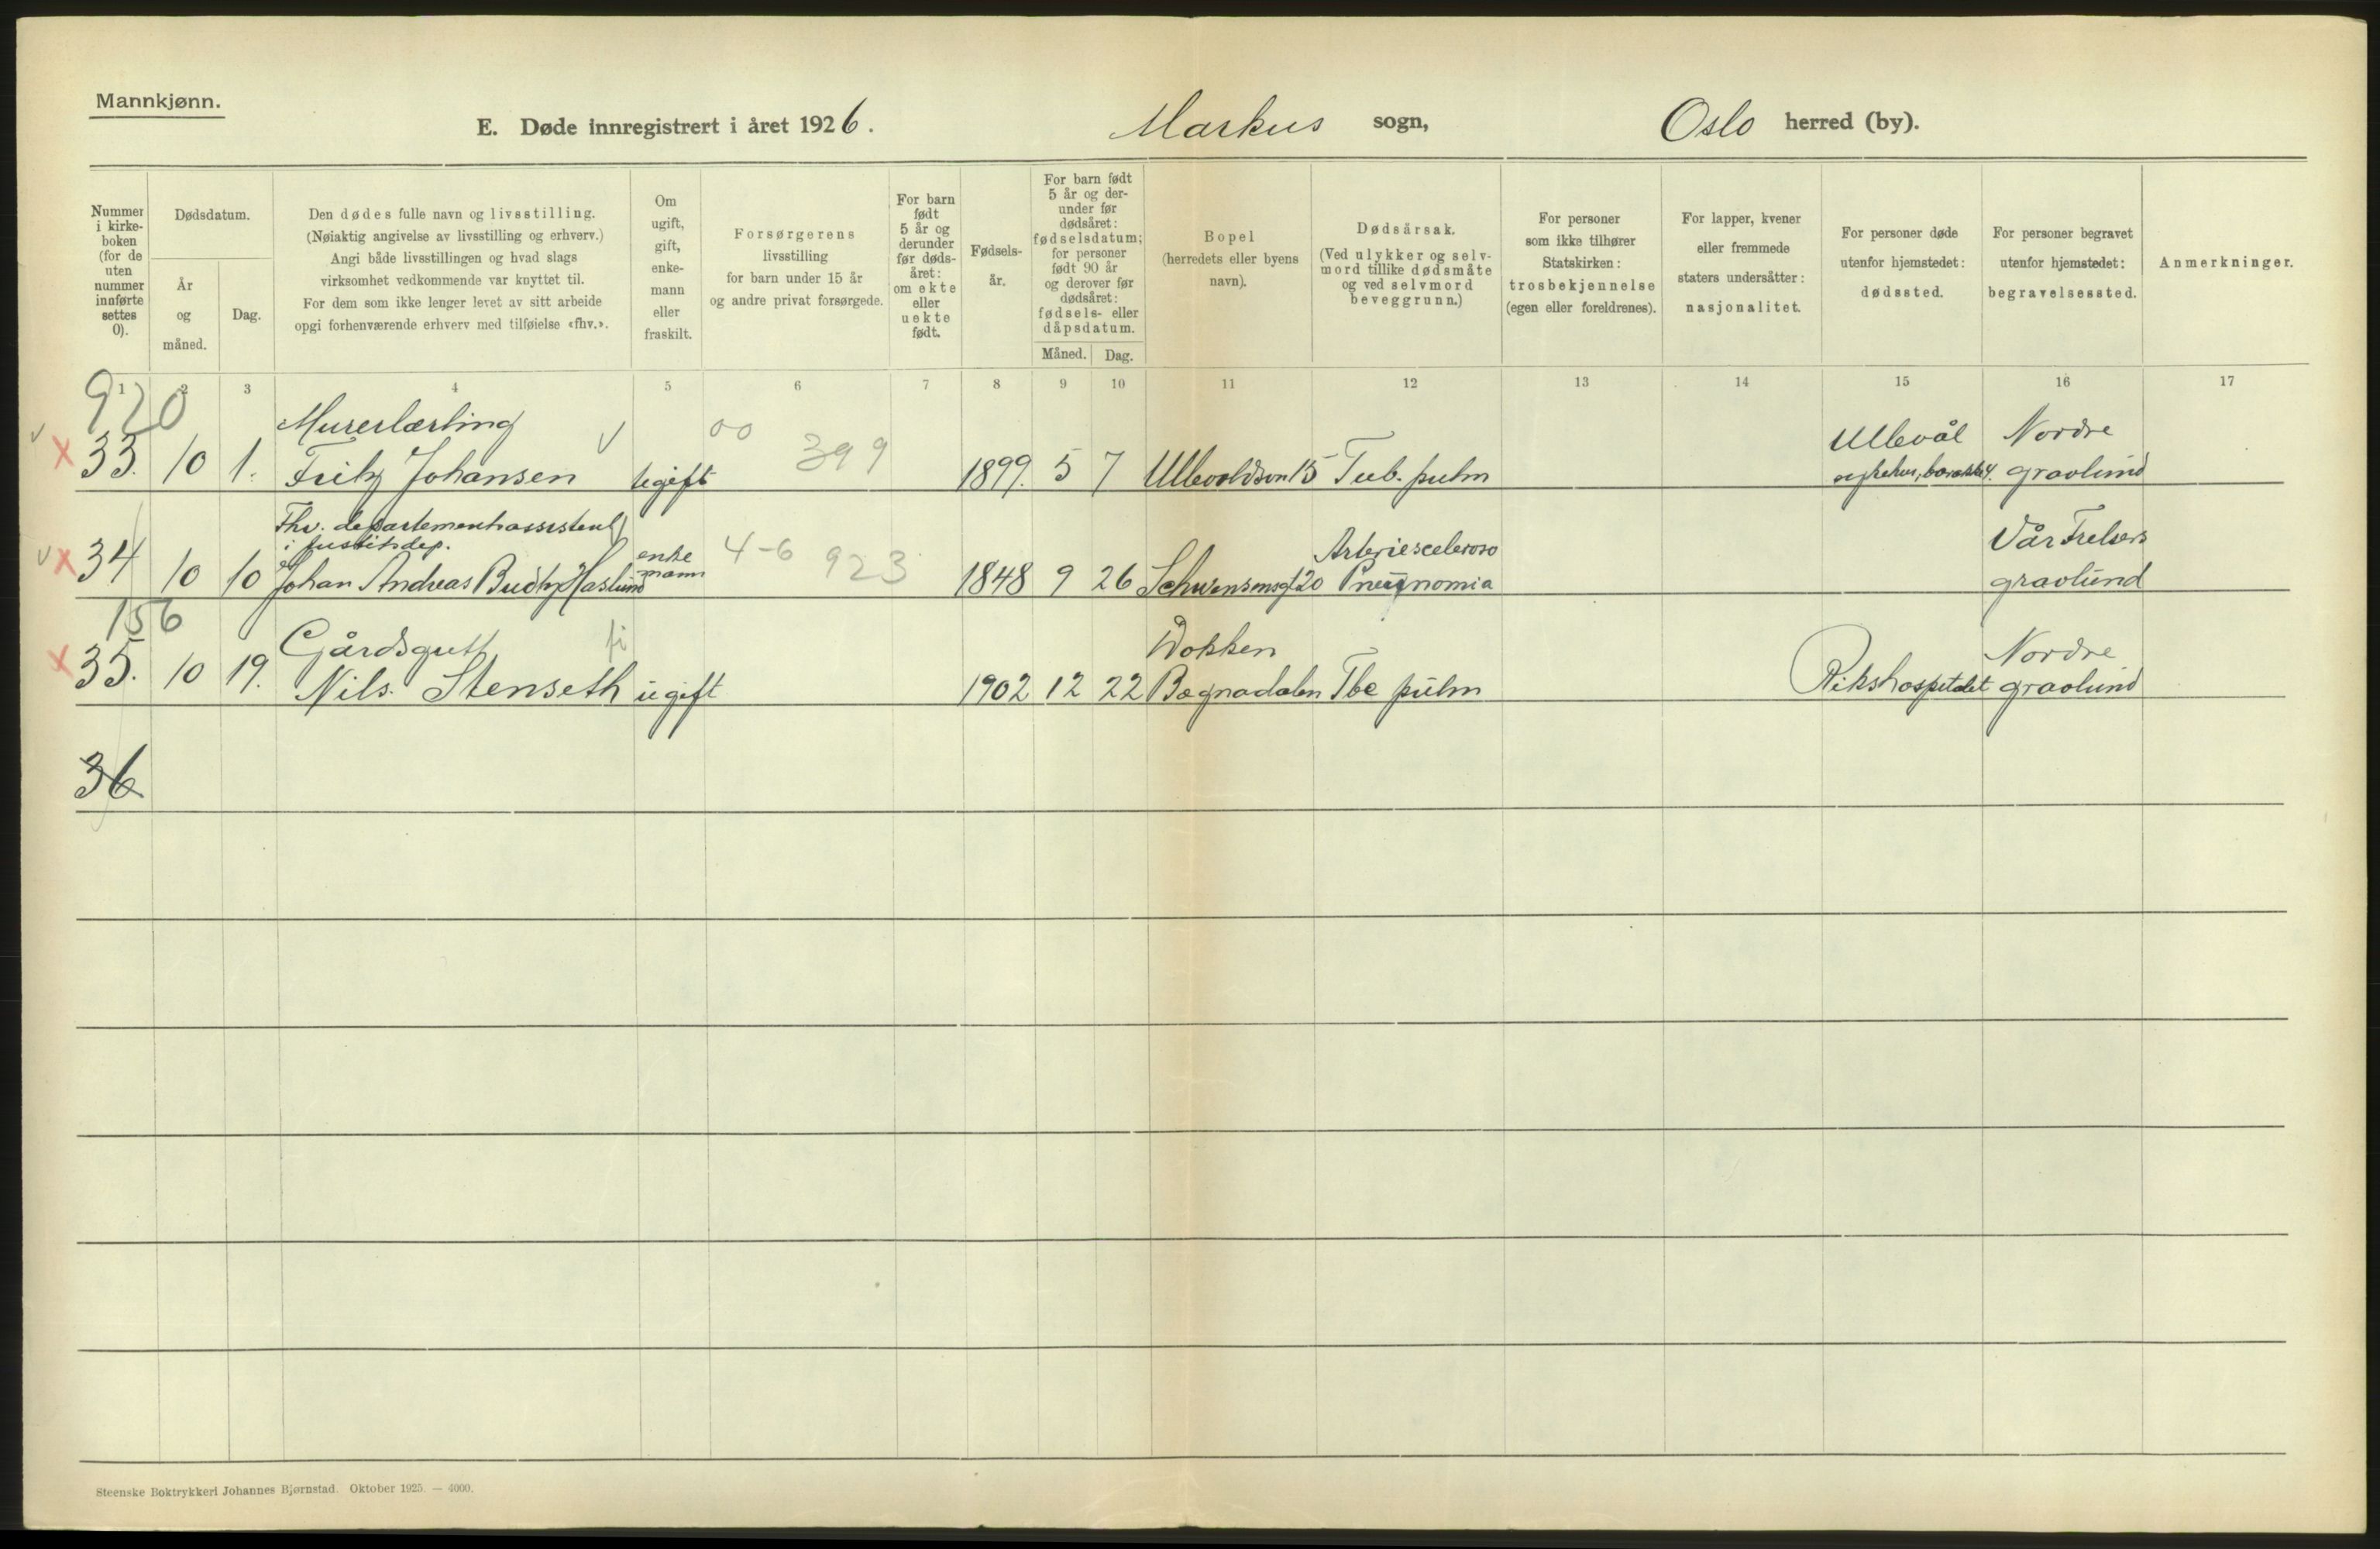 Mannkjønn.
E. Døde innregistrert i året 1926.
Markus sogn,
Oslo herred (by).
Nummer
i kirke-
boken
(for de
uten
nummer
innførte
settes
0).
Dødsdatum.
År
og
måned.
Dag.
Den dødes fulle navn og livsstilling.
(Nøiaktig angivelse av livsstilling og erhverv.)
Angi både livsstillingen og hvad slags
virksomhet vedkommende var knyttet til.
For dem som ikke lenger levet av sitt arbeide
opgi forhenværende erhverv med tilføielse «fhv.».
Om
ugift,
gift,
enke-
mann
eller
fraskilt.
Forsørgerens
livsstilling
for barn under 15 år
og andre privat forsørgede.
For barn
født
5 år og
derunder
før døds-
året:
om ekte
eller
uekte
født.
Fødsels-
år.
For barn født
5 år og der-
under før
dødsåret:
fødselsdatum;
for personer
født 90 år
og derover før
dødsåret:
fødsels- eller
dåpsdatum.
Måned.
Dag.
Bopel
(herredets eller byens
navn).
Dødsårsak.
(Ved ulykker og selv-
mord tillike dødsmåte
og ved selvmord
beveggrunn.)
For personer
som ikke tilhører
Statskirken:
trosbekjennelse
(egen eller foreldrenes).
For lapper, kvener
eller fremmede
staters undersåtter:
nasjonalitet.
For personer døde
utenfor hjemstedet:
dødssted.
For personer begravet
utenfor hjemstedet:
begravelsessted.
Anmerkninger.
1 2 3 4 5 6 7 8 9 10 11 12 13 14 15 16 17
920
Murerlærling
v oo 399
Ullevål Nordre
v x 33. 10 1. Fritz Johansen ugift 1899. 5 7 Ullevoldsvn 15 Tub. pulm sykehus, barakke 4. gravlund
Fhv. departementsassistent
i justitsdep.
enke
mann
4-6 923
Arteriescleroso
Vår Frelsers
v x 34 10 10 Johan Andreas Budtz Haslund 1848 9 26 Schwensensgt 20 Pneumonia gravlund
156
Gårdsgutt
fi
Dokken
Nordre
x 35. 10 19. Nils Stenseth ugift 1902 12 22 Bagnadalen Tbc pulm Rikshospitalet gravlund
36
Steenske Boktrykkeri Johannes Bjørnstad. Oktober 1925. — 4000.